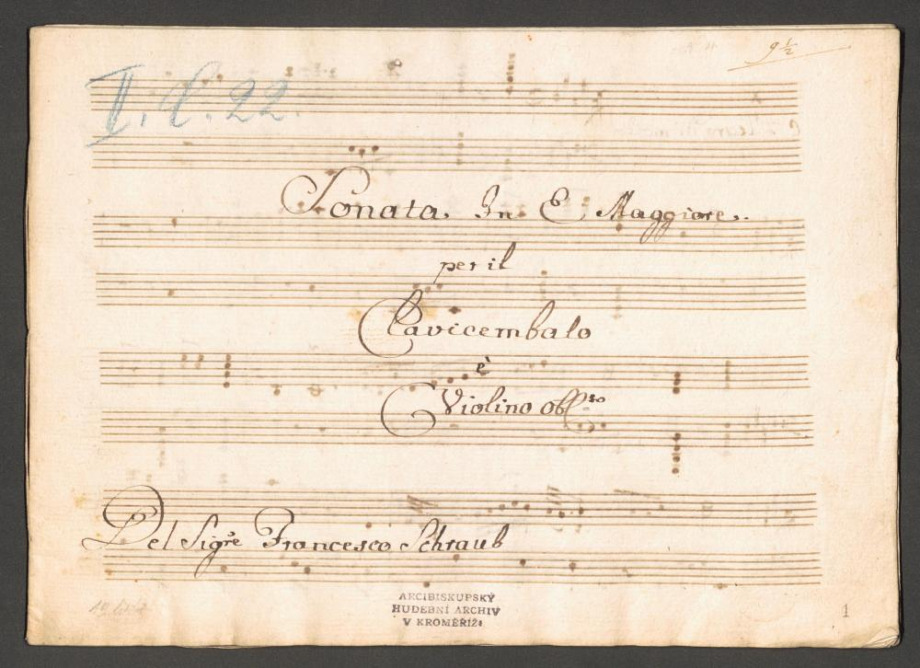 9½
II. C. 22.
Sonata. In E Maggiore.
per il
Clavicembalo
è
Violino obl:to
Del Sigre Francesco Schraub
ARCIBISKUPSKÝ
HUDEBNÍ ARCHIV
V KROMĚŘÍŽI
1